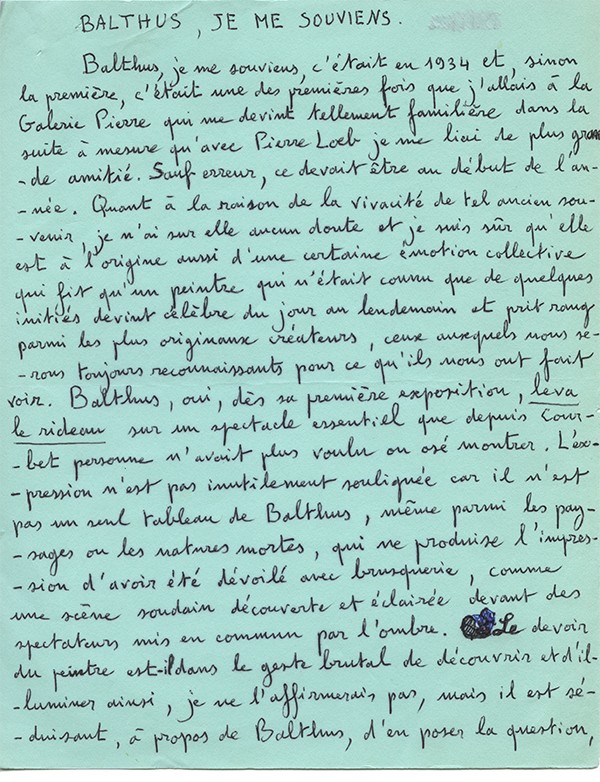 BALTHUS, JE ME SOUVIENS.
Balthus, je me souviens, c'était en 1934 et, sinon
la première, c'était une des premières fois que j'allais à la
Galerie Pierre qui me devint tellement familière dans la
suite à mesure qu'avec Pierre Loeb je me liai de plus gran
-de amitié. Sauf erreur, ce devait être au début de l'an-
-née. Quant à la raison de la vivacité de tel ancien sou-
-venir, je n'ai sur elle aucun doute et je suis sûr qu'elle
est à l'origine aussi d'une certaine émotion collective
qui fit qu'un peintre qui n'était connu que de quelques
initiés devint célèbre du jour au lendemain et prit rang
parmi les plus originaux créateurs, ceux auxquels nous se-
-rons toujours reconnaissants pour ce qu'ils nous ont fait
voir. Balthus, oui, dès sa première exposition, leva
le rideau sur un spectacle essentiel que depuis Cour-
-bet personne n'avait plus voulu ou osé montrer. L'ex-
-pression n'est pas inutilement soulignée car il n'est
pas un seul tableau de Balthus, même parmi les pay-
-sages ou les natures mortes, qui ne produise l'impres-
-sion d'avoir été dévoilé avec brusquerie, comme
une scène soudain découverte et éclairée devant des
spectateurs mis en commun par l'ombre. Le devoir
du peintre est-il dans le geste brutal de découvrir et d'il-
-luminer ainsi, je ne l'affirmerais pas, mais il est sé-
-duisant, à propos de Balthus, d'en poser la question,